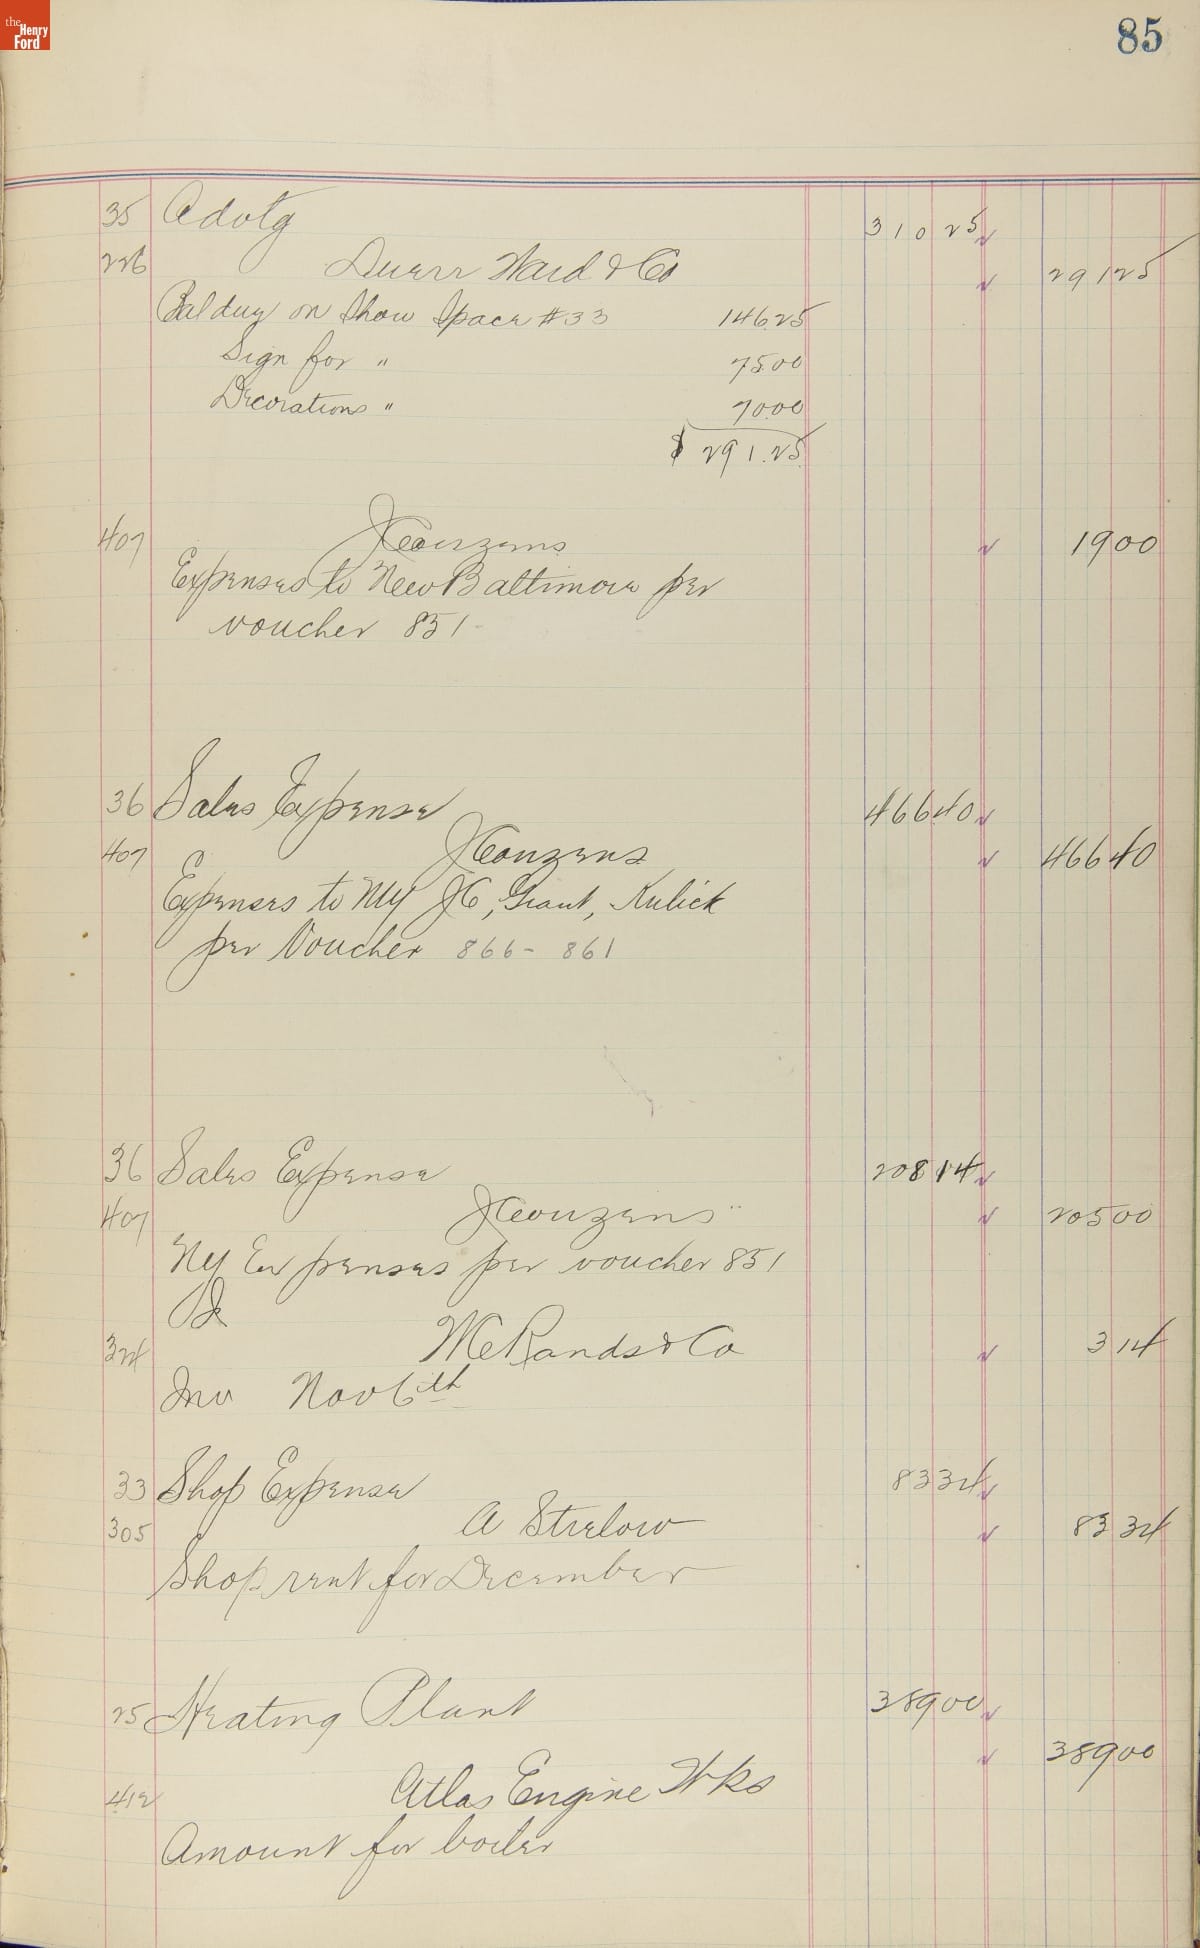 the Henry Ford
85
35 Advtg 310 25
226 Duerr Ward & Co 291 25
Bal due on Show Space #33 146.25
Sign for " 75.00
Decorations " 70.00
$ 291.25
407 J Couzens 19 00
Expenses to New Baltimore per
voucher 851
36 Sales Expense 466 40
407 J Couzens 466 40
Expenses to NY JC, Grant, Kulick
per Voucher 866 - 861
36 Sales Expense 208 14
407 J Couzens 205 00
NY Expenses per voucher 851
324 W C Rands & Co 3 14
Inv Nov 6th
33 Shop Expense 83 34
305 A Strelow 83 34
Shop rent for December
25 Heating Plant 389 00
389 00
412 Atlas Engine Wks
Amount for boiler